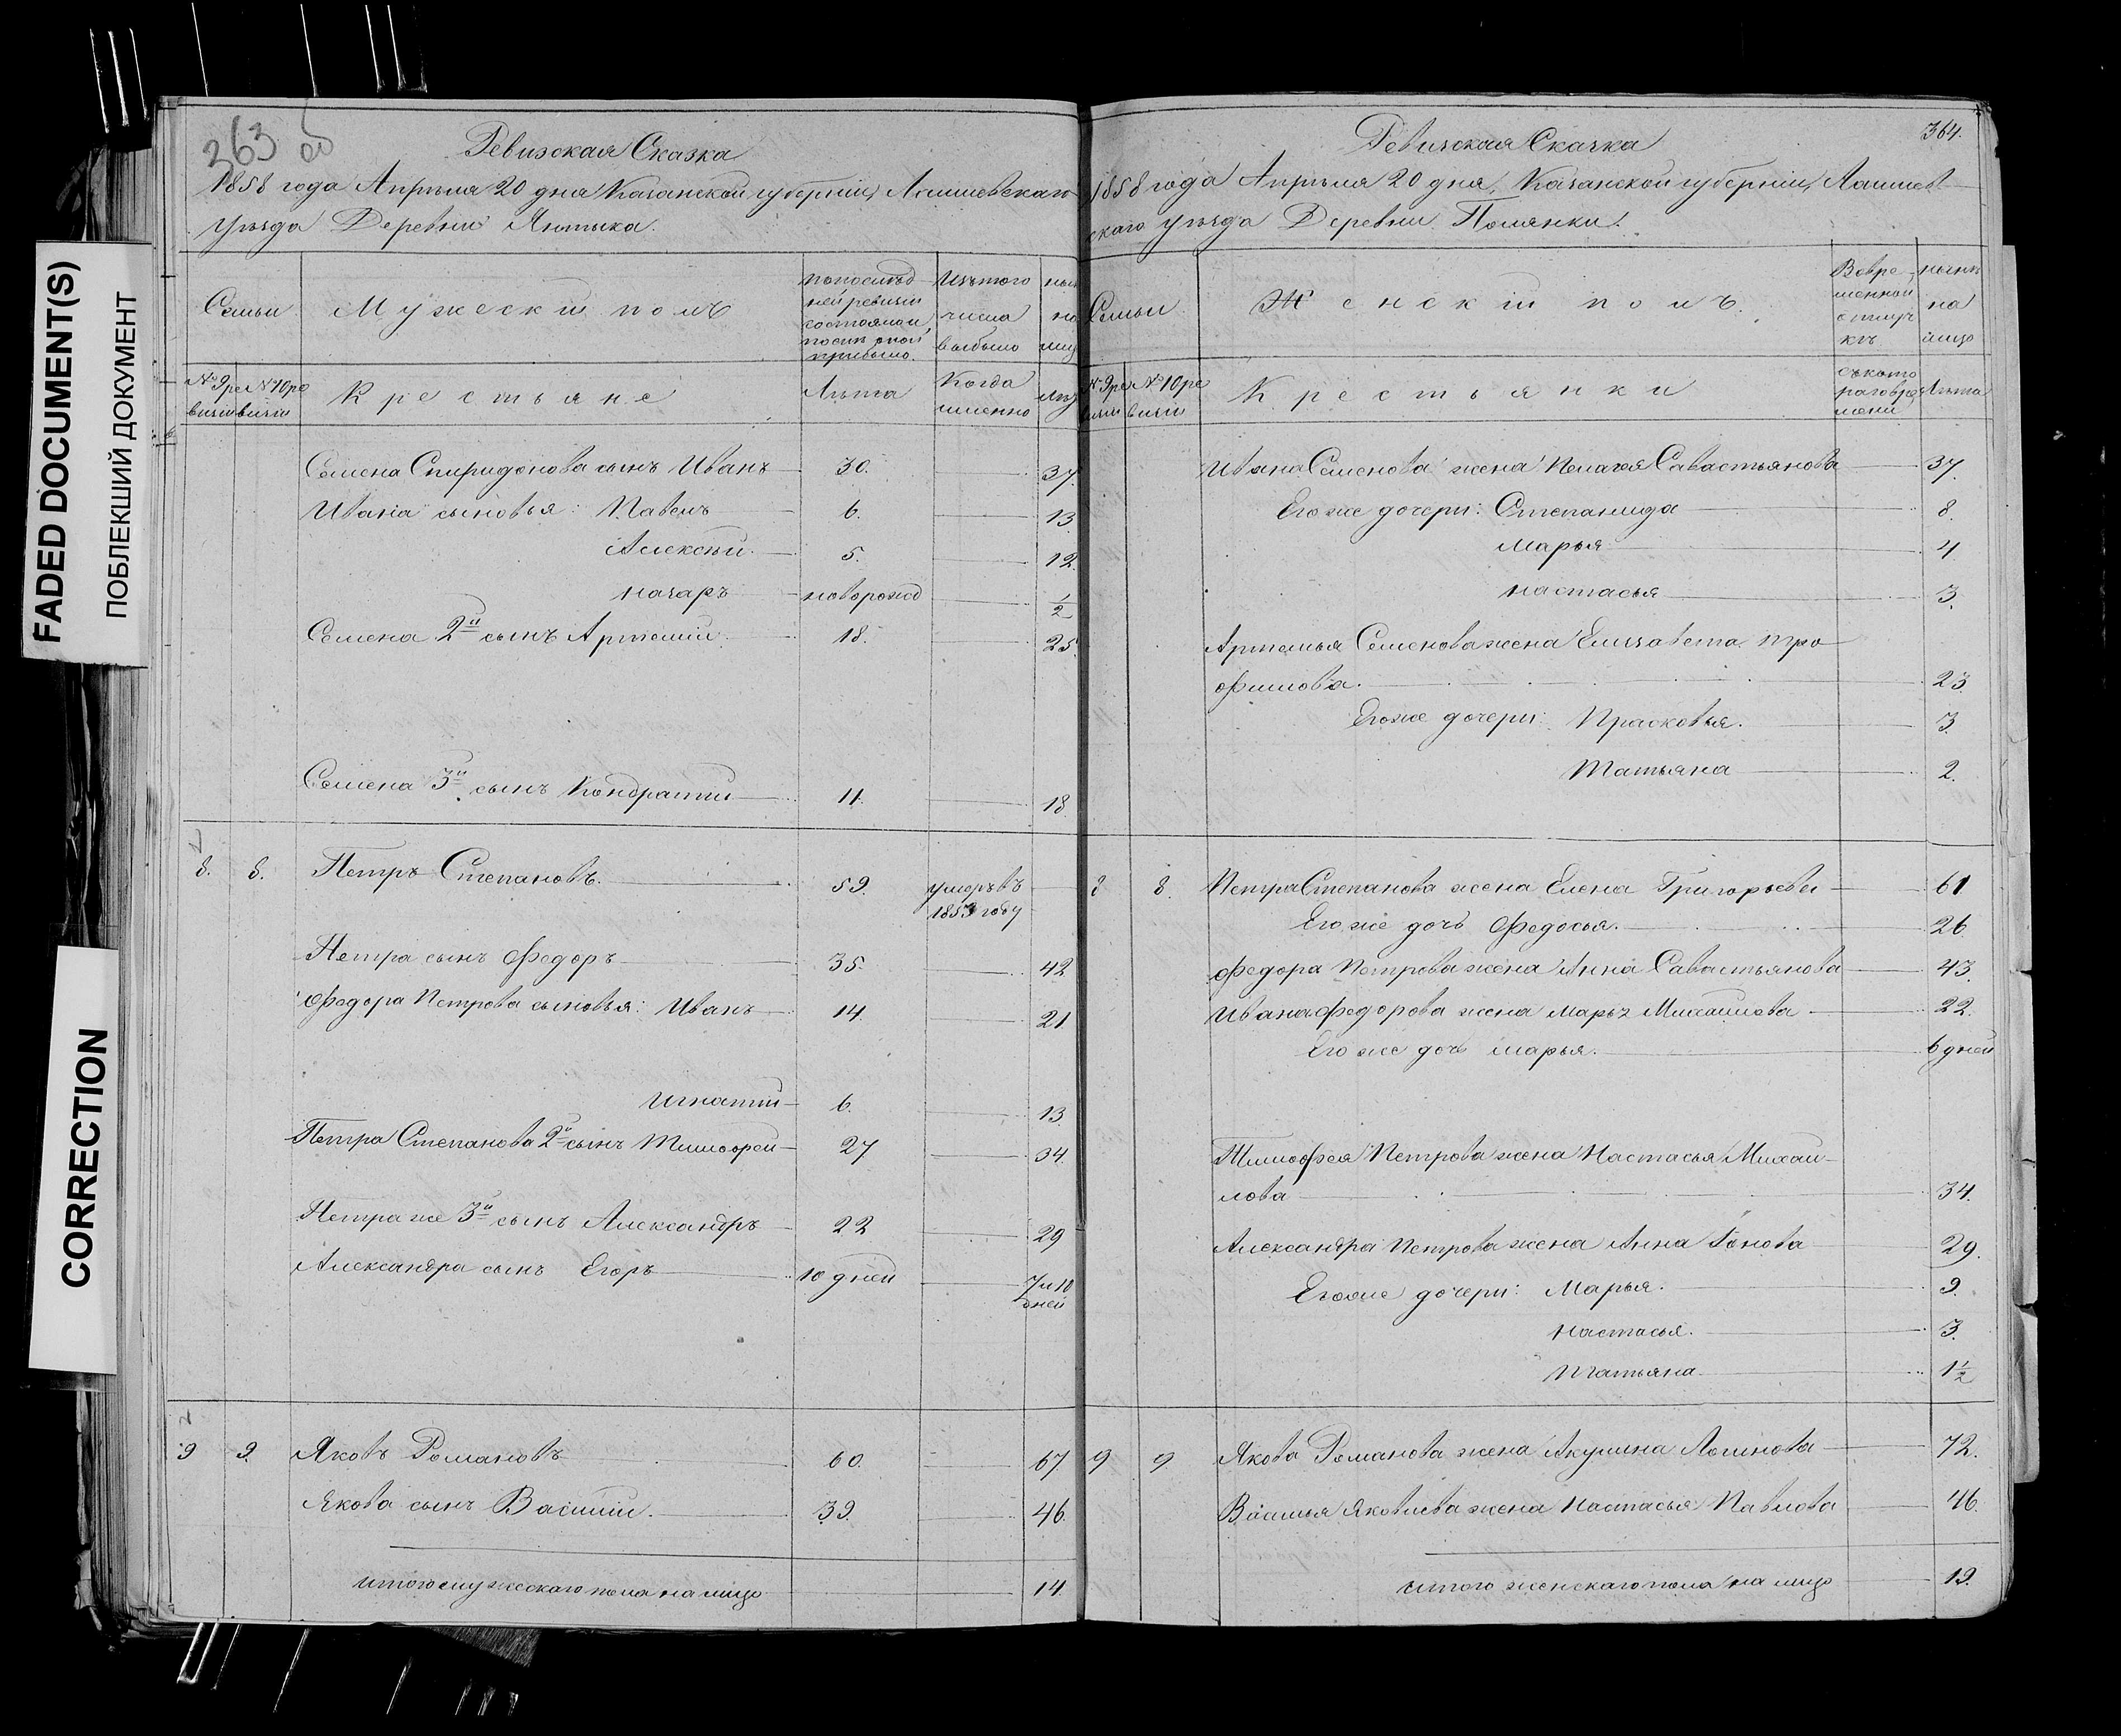 FADED DOCUMENT(S)
ПОБЛЕКШИЙ ДОКУМЕНТ
CORRECTION
263 об
Ревизская Сказка
1858 года Апрѣля 20 дня Казанской губерніи, Лаишевскаго
уѣзда Деревни Янтыка.
Семьи
Мужескій полъ
По послѣд
ней ревизіи
состояло и
послѣ оной
прибыло.
Изъ того
числа
выбыло
ны
на
лиц
№ 9 ре
визіи
№ 10 ре
визіи
Крестьяне
Лѣта
Когда
именно
Лѣ
Семена Спиридонова сынъ Иванъ 30. 37.
Ивана сыновья: Павелъ 6. 13
Алексѣй 5. 12.
Назаръ новорожд 1/2
Семена 2й сынъ Артемій 18. 25.
Семена 3й сынъ Кондратій 11. 18.
8. 8. Петръ Степановъ. 59. умеръ въ
1853 году
Петра сынъ Федоръ 35. 42
Федора Петрова сыновья: Иванъ 14. 21
Игнатій 6. 13.
Петра Степанова 2й сынъ Тимофей 27 34.
Петра же 3й сынъ Александръ 22 29
Александра сынъ Егоръ 10 дней 7 и 10
дней
9 9. Яковъ Романовъ 60. 67.
Якова сынъ Василій. 39. 46.
итого мужескаго пола на лицо 14.
364.
Ревизская Сказка
1858 года Апрѣля 20 дня, Казанской губерніи, Лаишев
скаго уѣзда Деревни Полянки.
Семьи
Женскій полъ.
Вовре
менной
отлуч
кѣ
нынѣ
на
лицо
№ 9 ре
визіи
№ 10 ре
визіи
Крестьянки
съ кото
раго вре
мени
Лѣта
Ивана Семенова жена Пелагея Савастьянова 37.
Его же дочери: Степанида 8.
Марья 4
Настасья 3.
Артемья Семенова жена Елизавета Тро
фимова. 23
Его же дочери: Прасковья. 3.
Татьяна 2.
8 8. Петра Степанова жена Елена Григорьева 61
Его же дочь Федосья. 26
Федора Петрова жена Анна Савастьянова 43.
Ивана Федорова жена Марья Михайлова 22.
Его же дочь Марья. 6 дней
Тимофея Петрова жена Настасья Михай
лова 34.
Александра Петрова жена Анна 29.
Его же дочери: Марья. 9.
Настасья. 3.
Татьяна 1 1/2
9 9 Якова Романова жена Акулина Логинова 72.
Василья Яковлева жена Настасья Павлова 46.
итого женскаго пола на лицо 19.